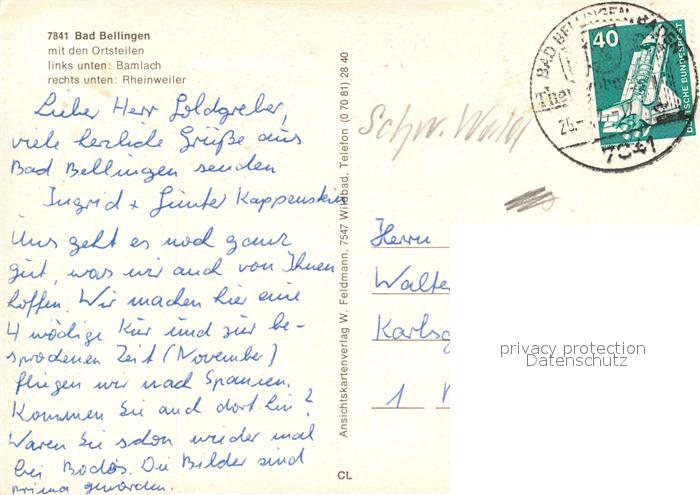 7841 Bad Bellingen
mit den Ortsteilen
links unten: Bamlach
rechts unten: Rheinweiler
Lieber Herr Goldgreber,
viele herzliche Grüße aus
Bad Bellingen senden
Ingrid + Günter Kappenstein
Uns geht es noch ganz
gut, was wir auch von Ihnen
hoffen. Wir machen hier eine
4 wödige Kur und zur be-
sprochenen Zeit (November)
fliegen wir nach Spanien.
Kommen Sie auch dort hin?
Waren Sie schon wieder mal
bei Bodos. Die Bilder sind
prima geworden.
Ansichtskartenverlag W. Feldmann, 7547 Wildbad, Telefon (0 70 81) 28 40
CL
Schw. Wald
40
DEUTSCHE BUNDESPOST
BAD BELLINGEN, BADEN
7841
Herrn
Walte
Karls
1
privacy protection
Datenschutz